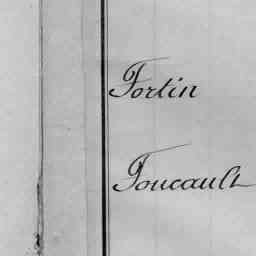 Fortin
Foucault